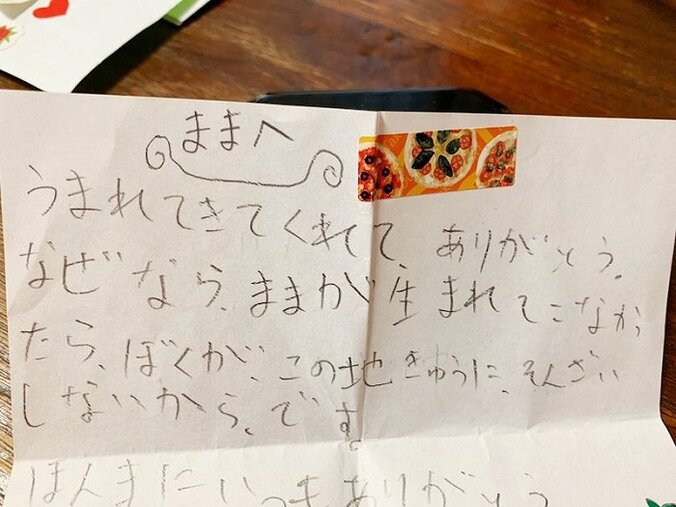 ままへ
うまれてきてくれて、ありがとう。
なぜなら、ままが生まれてこなか
たら、ぼくが、この地きゅうに、そんざい
しないから、です。
ほんまにいつもありがとう